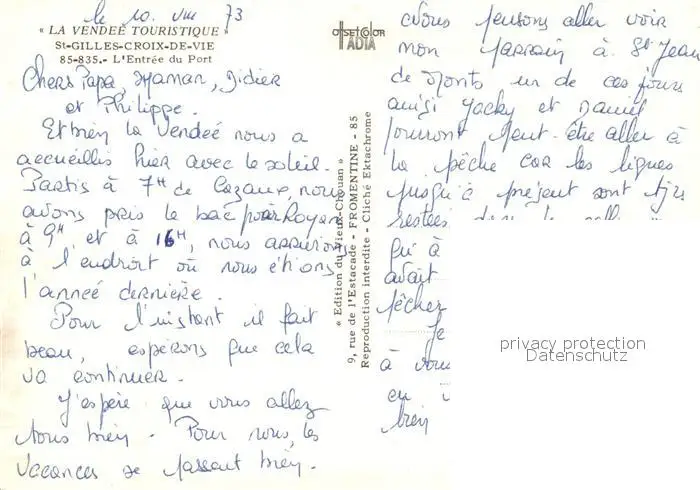 le 10. VIII 73
" LA VENDÉE TOURISTIQUE "
St-GILLES-CROIX-DE-VIE
85-835.- L'Entrée du Port
Chers Papa, Maman, Didier
et Philippe.
Et bien la Vendée nous a
accueillis hier avec le soleil.
Partis à 7H de Cazaux, nous
avons pris le bac pour Royan
à 9H et à 16H, nous arrivions
à l'endroit où nous étions
l'année dernière.
Pour l'instant il fait
beau, espérons que cela
va continuer.
J'espère que vous allez
tous bien. Pour nous, les
vacances se passent bien.
offset color
IADIA
« Edition du Vieux-Chouan »
9, rue de l'Estacade - FROMENTINE - 85
Reproduction interdite - Cliché Ektachrome
Nous pensons aller voir
mon parrain à St Jean
de Monts un de ces jours
ainsi Jacky et Daniel
pourront peut-être aller à
la pêche car les lignes
jusqu'à présent sont tjrs
restées dans le
qu'à
avait
pêcher
Je
à vous
en
bien
privacy protection
Datenschutz